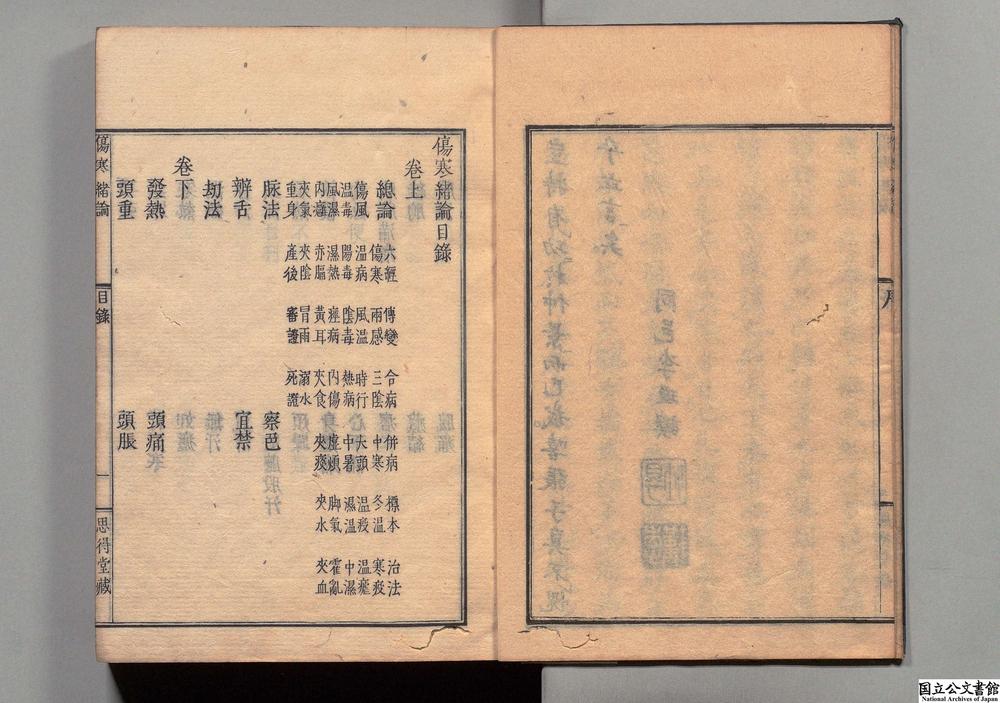 傷寒緒論目錄
卷上
總論 六經 傳變 合病 併病 標本 治法
傷寒 兩感 三陰 中寒 冬溫 寒疫
傷風 溫病 風溫 時行 大頭 溫疫 溫瘧
溫毒 陽毒 陰毒 熱病 中暑 濕溫 中濕
風濕 濕熱 痙病 內傷 虛煩 脚氣 霍亂
內癰 赤膈 黃耳 夾食 夾痰 夾水 夾血
夾氣 夾陰 冒雨 溺水
重身 產後 審證 死證
脉法 察色
辨舌 宜禁
劫法
卷下
發熱 頭痛
頭重 頭脹
傷寒緒論 目錄 一 思得堂藏
国立公文書館
National Archives of Japan